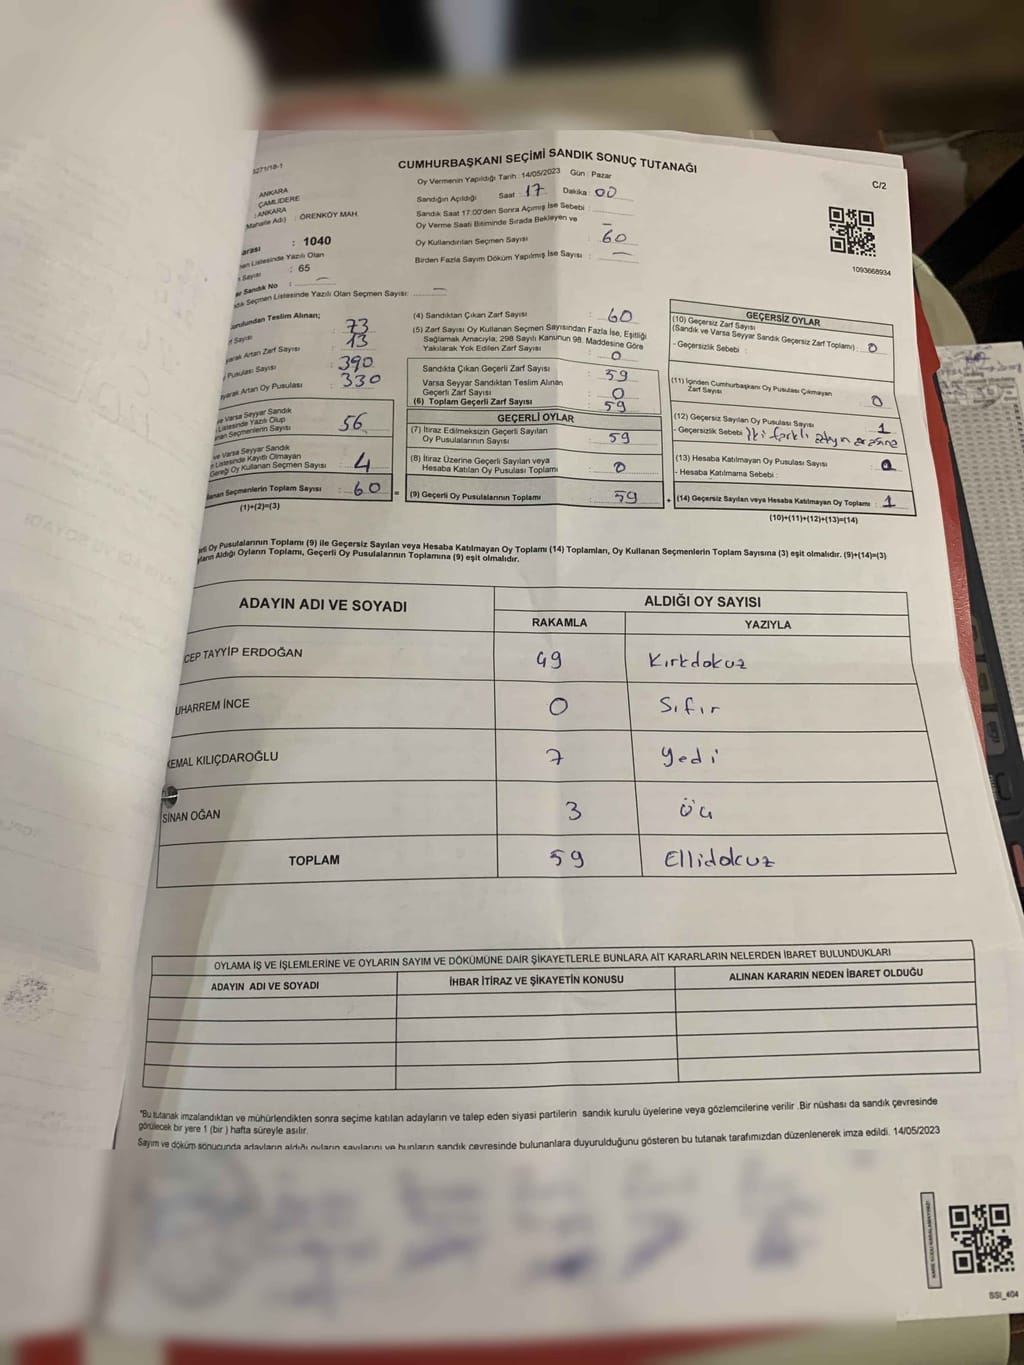 5271/18-1
CUMHURBAŞKANI SEÇİMİ SANDIK SONUÇ TUTANAĞI
C/2
ANKARA
ÇAMLIDERE
: ANKARA
Mahalle Adı) : ÖRENKÖY MAH.
arası : 1040
nen Listesinde Yazılı Olan
n Sayısı : 65
ar Sandık No : —
dık Seçmen Listesinde Yazılı Olan Seçmen Sayısı: —
Oy Vermenin Yapıldığı Tarih : 14/05/2023 Gün : Pazar
Sandığın Açıldığı Saat : 17 Dakika : 00
Sandık Saat 17:00'den Sonra Açılmış İse Sebebi :
Oy Verme Saati Bitiminde Sırada Bekleyen ve —
Oy Kullandırılan Seçmen Sayısı : 60
Birden Fazla Sayım Döküm Yapılmış İse Sayısı : —
1093668934
urulundan Teslim Alınan;
rf Sayısı : 73
yarak Artan Zarf Sayısı : 13
Pusulası Sayısı : 390
yarak Artan Oy Pusulası : 330
ve Varsa Seyyar Sandık
Listesinde Yazılı Olup
nan Seçmenlerin Sayısı : 56
ve Varsa Seyyar Sandık
n Listesinde Kayıtlı Olmayan
Gereği Oy Kullanan Seçmen Sayısı : 4
lanan Seçmenlerin Toplam Sayısı : 60
(1)+(2)=(3)
(4) Sandıktan Çıkan Zarf Sayısı : 60
(5) Zarf Sayısı Oy Kullanan Seçmen Sayısından Fazla İse, Eşitliği
Sağlamak Amacıyla, 298 Sayılı Kanunun 98. Maddesine Göre
Yakılarak Yok Edilen Zarf Sayısı : 0
Sandıkta Çıkan Geçerli Zarf Sayısı : 59
Varsa Seyyar Sandıktan Teslim Alınan
Geçerli Zarf Sayısı : 0
(6) Toplam Geçerli Zarf Sayısı : 59
GEÇERLİ OYLAR
(7) İtiraz Edilmeksizin Geçerli Sayılan
Oy Pusulalarının Sayısı : 59
(8) İtiraz Üzerine Geçerli Sayılan veya
Hesaba Katılan Oy Pusulası Toplamı : 0
= (9) Geçerli Oy Pusulalarının Toplamı : 59
GEÇERSİZ OYLAR
(10) Geçersiz Zarf Sayısı
(Sandık ve Varsa Seyyar Sandık Geçersiz Zarf Toplamı) : 0
- Geçersizlik Sebebi :
(11) İçinden Cumhurbaşkanı Oy Pusulası Çıkmayan
Zarf Sayısı : 0
(12) Geçersiz Sayılan Oy Pusulası Sayısı : 1
- Geçersizlik Sebebi : İki farklı
(13) Hesaba Katılmayan Oy Pusulası Sayısı : 0
- Hesaba Katılmama Sebebi :
+ (14) Geçersiz Sayılan veya Hesaba Katılmayan Oy Toplamı : 1
(10)+(11)+(12)+(13)=(14)
erli Oy Pusulalarının Toplamı (9) ile Geçersiz Sayılan veya Hesaba Katılmayan Oy Toplamı (14) Toplamları, Oy Kullanan Seçmenlerin Toplam Sayısına (3) eşit olmalıdır. (9)+(14)=(3)
ların Aldığı Oyların Toplamı, Geçerli Oy Pusulalarının Toplamına (9) eşit olmalıdır.
ADAYIN ADI VE SOYADI ALDIĞI OY SAYISI
RAKAMLA YAZIYLA
CEP TAYYİP ERDOĞAN 49 Kırkdokuz
UHARREM İNCE 0 Sıfır
KEMAL KILIÇDAROĞLU 7 Yedi
SİNAN OĞAN 3 Üç
TOPLAM 59 Ellidokuz
OYLAMA İŞ VE İŞLEMLERİNE VE OYLARIN SAYIM VE DÖKÜMÜNE DAİR ŞİKAYETLERLE BUNLARA AİT KARARLARIN NELERDEN İBARET BULUNDUKLARI
ADAYIN ADI VE SOYADI İHBAR İTİRAZ VE ŞİKAYETİN KONUSU ALINAN KARARIN NEDEN İBARET OLDUĞU
*Bu tutanak imzalandıktan ve mühürlendikten sonra seçime katılan adayların ve talep eden siyasi partilerin sandık kurulu üyelerine veya gözlemcilerine verilir .Bir nüshası da sandık çevresinde
görülecek bir yere 1 (bir ) hafta süreyle asılır.
Sayım ve döküm sonucunda adayların aldığı oyların sayılarını ve bunların sandık çevresinde bulunanlara duyurulduğunu gösteren bu tutanak tarafımızdan düzenlenerek imza edildi. 14/05/2023
KARE KODU KARALAMAYINIZ!
SSI_404